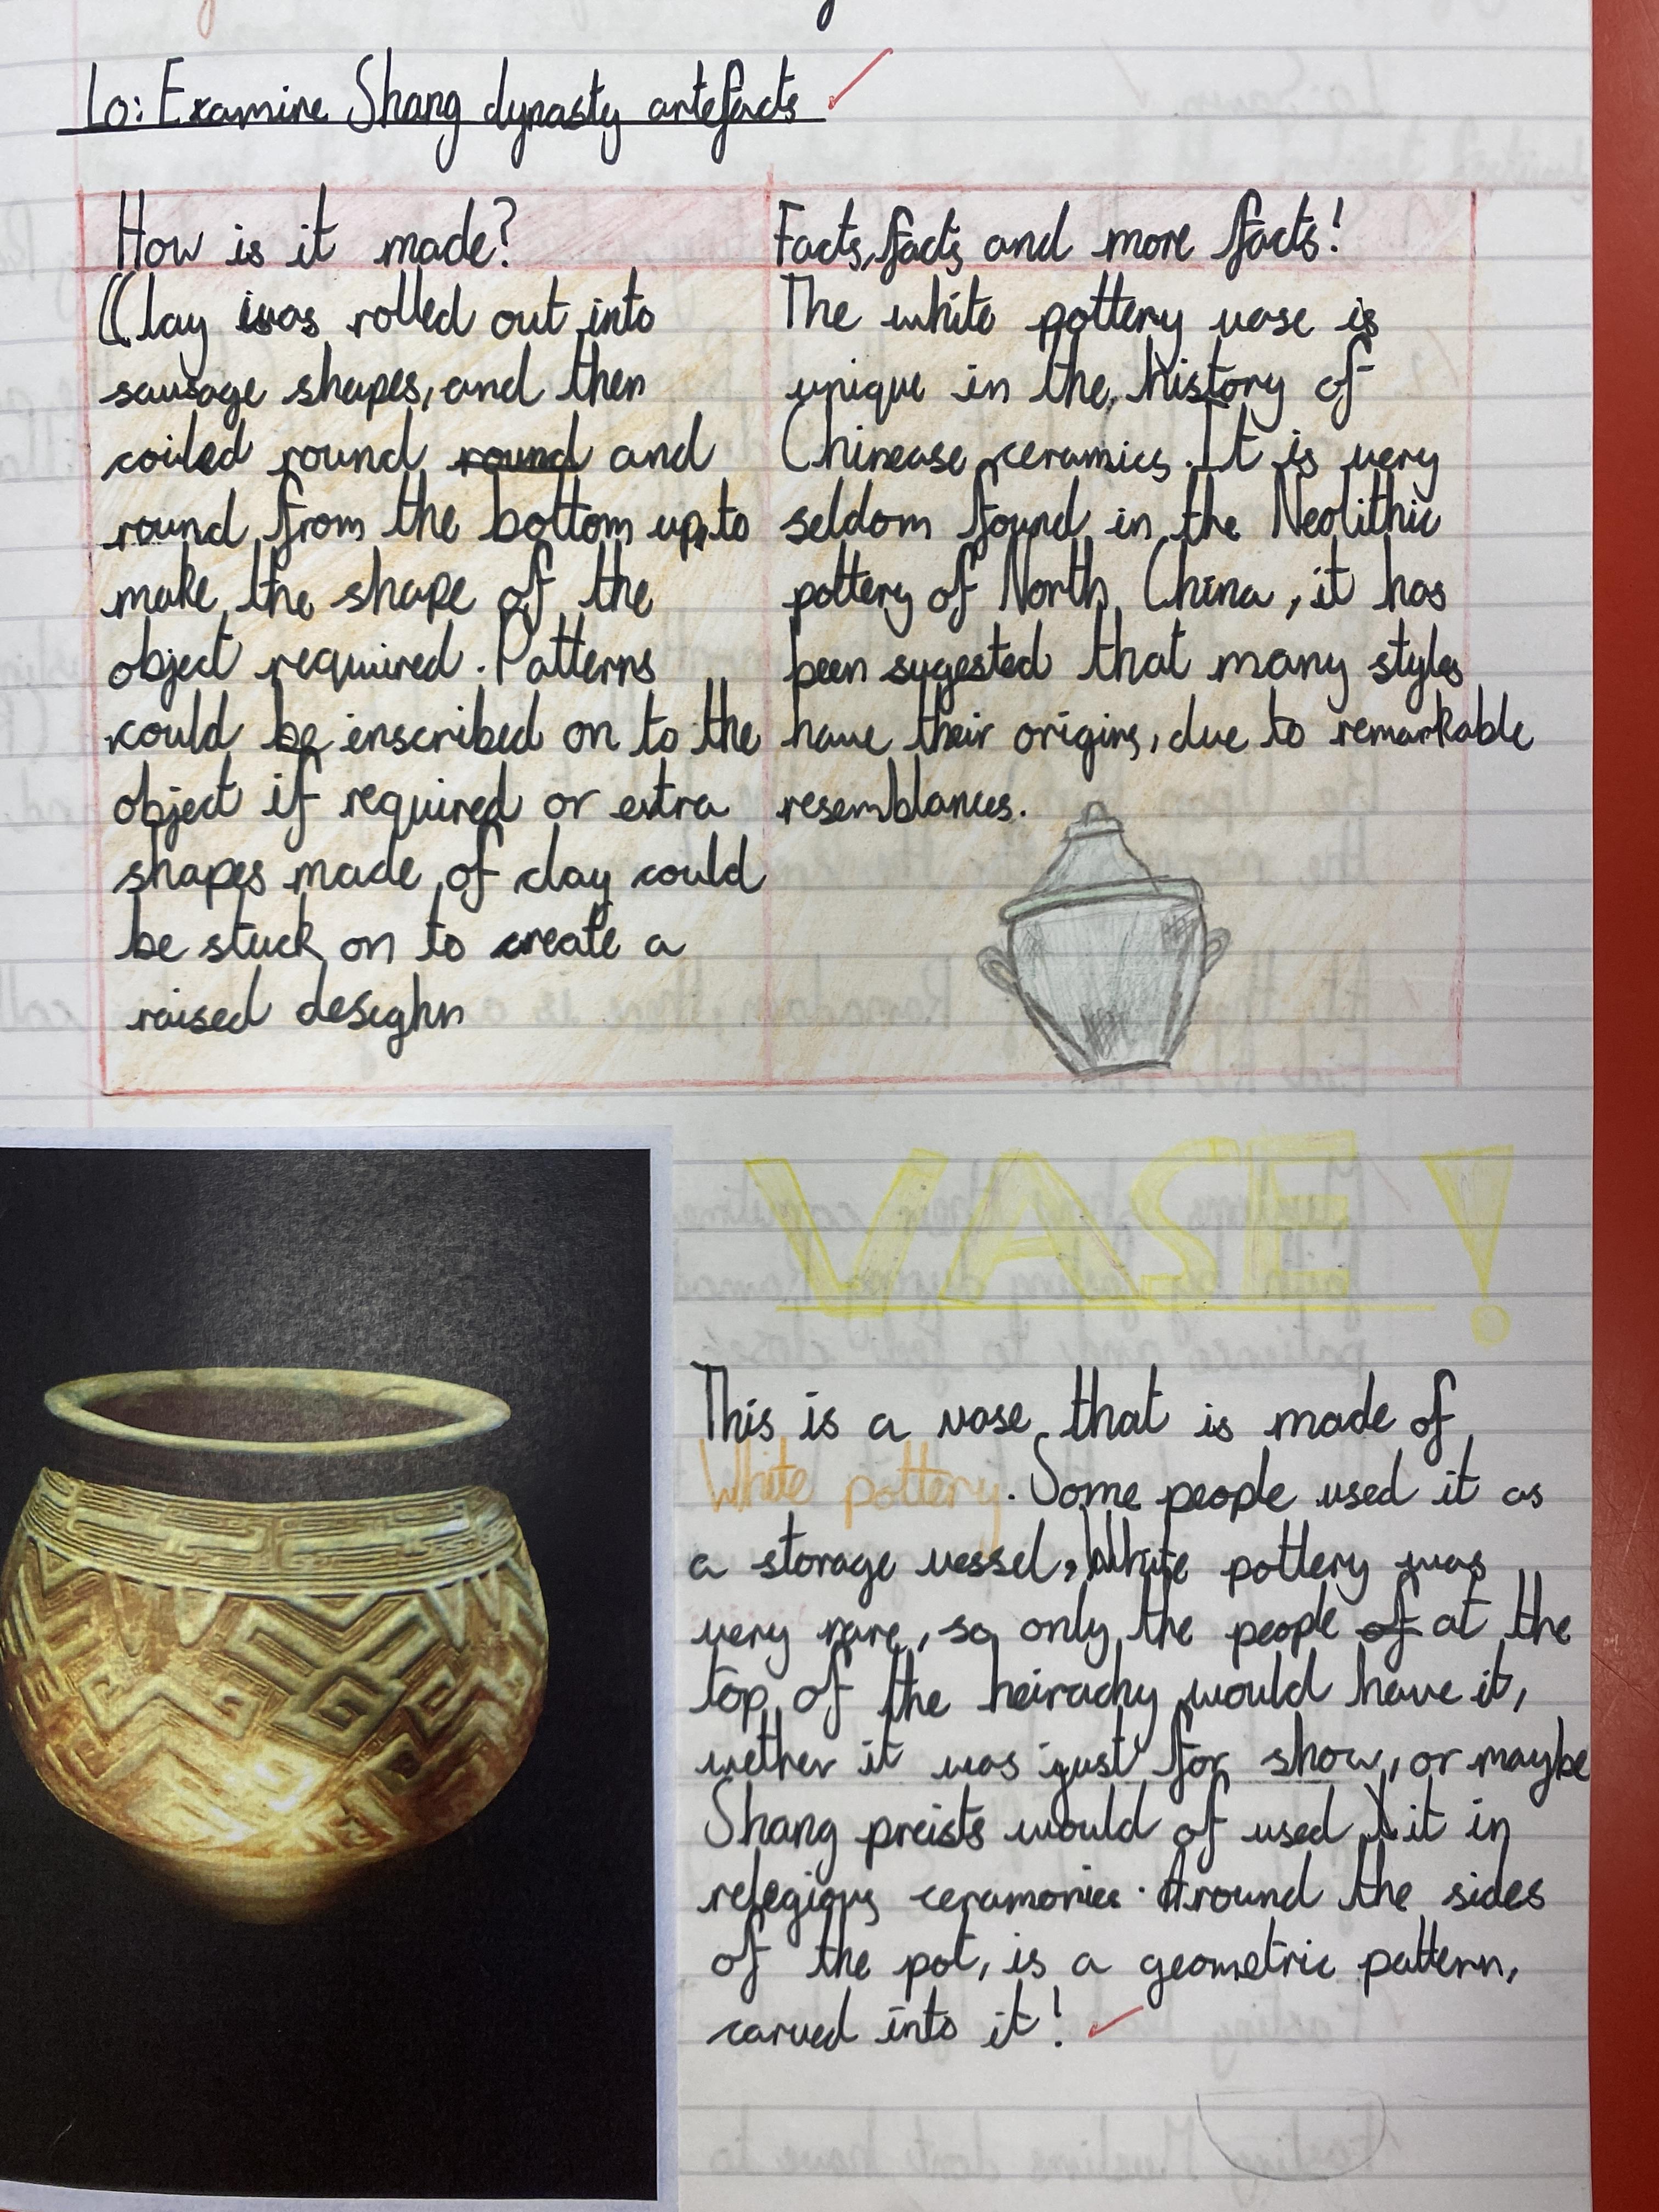 Lo: Examine Shang dynasty artefacts
How is it made?
Clay was rolled out into
sausage shapes, and then
coiled round round and
round from the bottom up, to
make the shape of the
object required. Patterns
could be enscribed on to the
object if required or extra
shapes made of clay could
be stuck on to create a
raised desighn
Facts, facts and more facts!
The white pottery vase is
unique in the history of
Chinease ceramics. It is very
seldom found in the Neolithic
pottery of North China, it has
been sugested that many styles
have their origins, due to remarkable
resemblances.
VASE!
This is a vase that is made of
White pottery. Some people used it as
a storage vessel, White pottery was
very rare, so only the people of at the
top of the heirachy would have it,
wether it was just for show, or maybe
Shang preists would of used it in
relegious ceramonies. Around the sides
of the pot, is a geometric pattern,
carved into it!